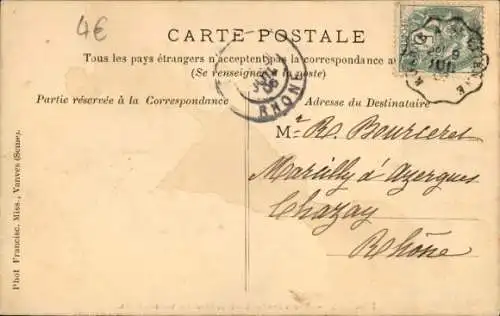 4€
CARTE POSTALE
Tous les pays étrangers n'acceptent pas la correspondance au
(Se renseigner à la poste)
Partie réservée à la Correspondance
Adresse du Destinataire
RHONE
Mr R. Bourseret
Marcilly d'Azergues
Chazay
Rhône
Phot Francisc. Miss., Vanves (Seine).